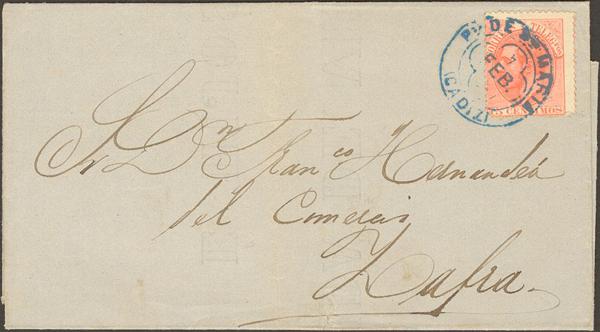 Pº DE Sta MARIA
7
FEB.
(CADIZ)
TELEGOS
15 CENTIMOS
Sr. Dn. Franco Hernandez
del Comercio
Zafra.